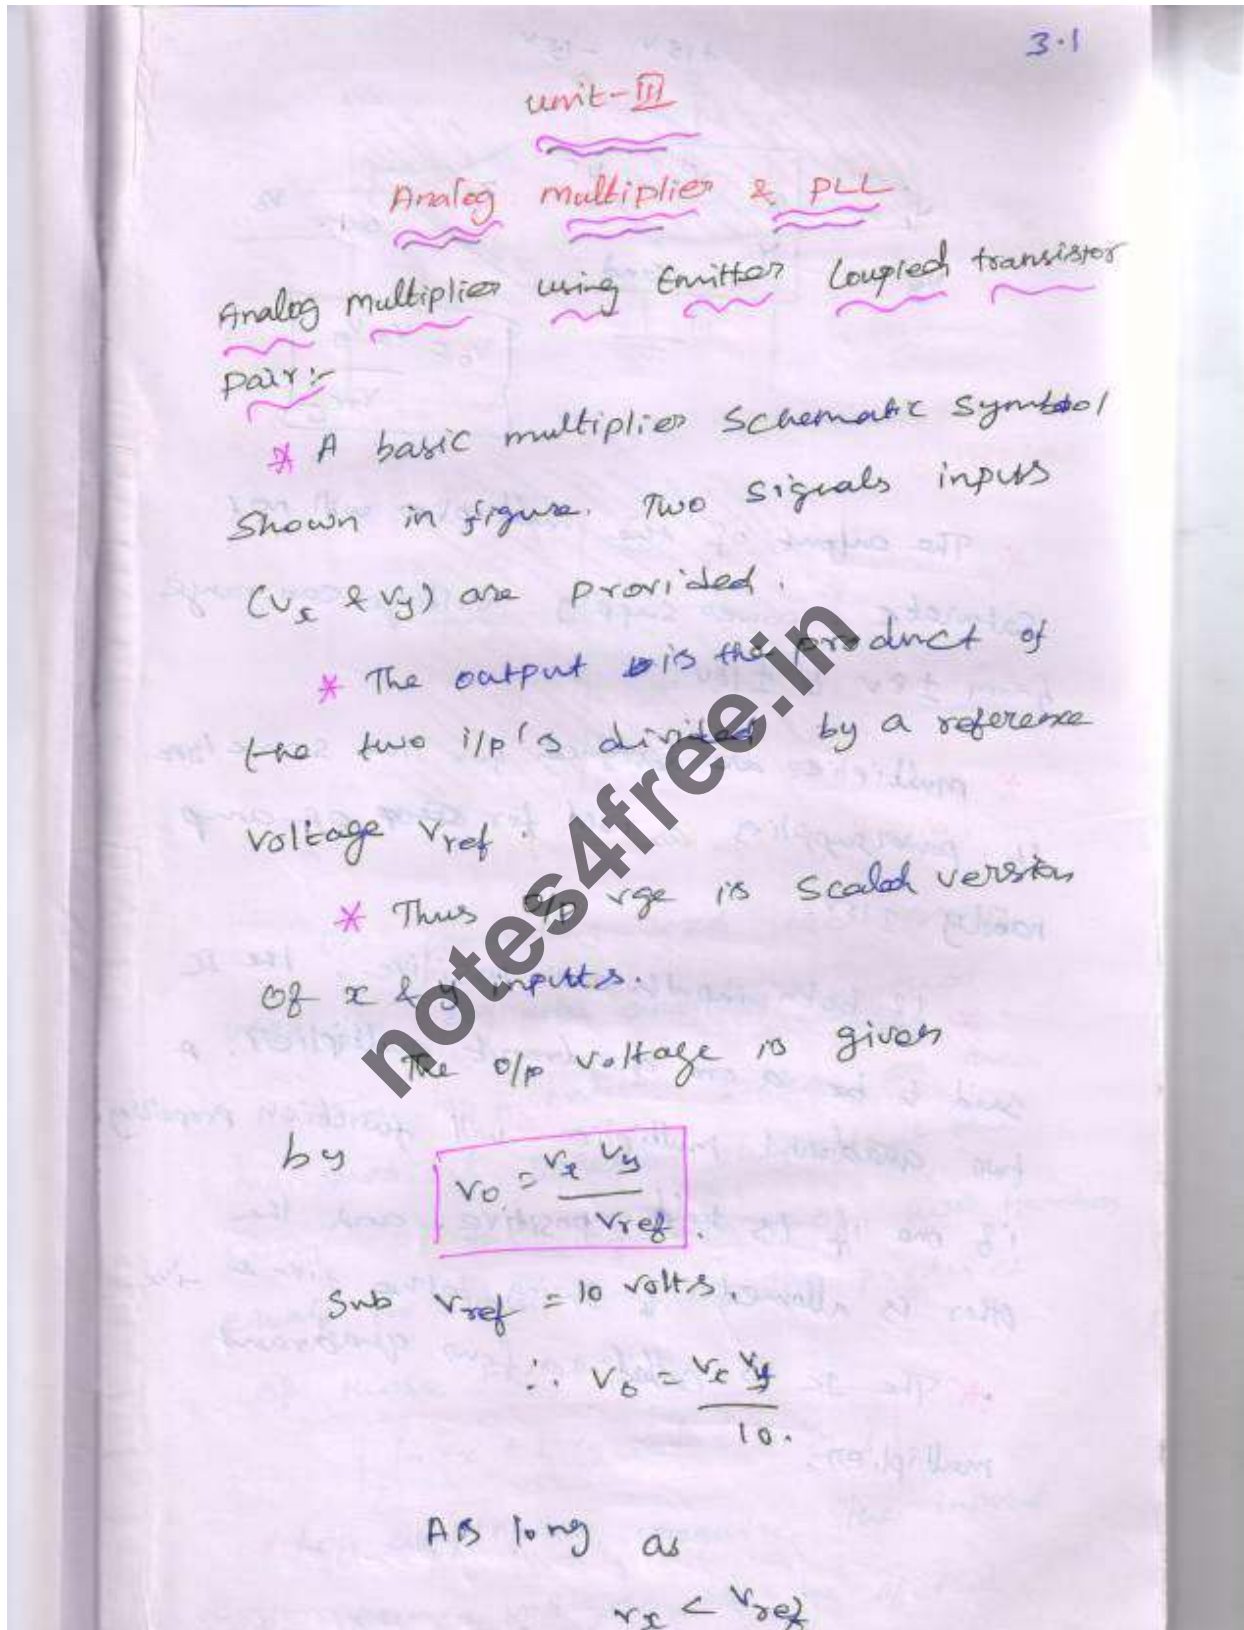 3.1
Unit-III
Analog multiplier & PLL.
Analog Multiplier using Emitter Coupled transistor
Pair:-
* A basic multiplier schematic symbol
shown in figure. Two signals inputs
(Vx & Vy) are provided.
* The output is the product of
the two i/p's divided by a reference
voltage Vref.
* Thus o/p vge is scaled version
of x & y inputs.
The o/p voltage is given
by
Vo = Vx Vy / Vref.
Sub Vref = 10 volts.
∴ Vo = Vx Vy / 10.
As long as
Vx < Vref
notes4free.in